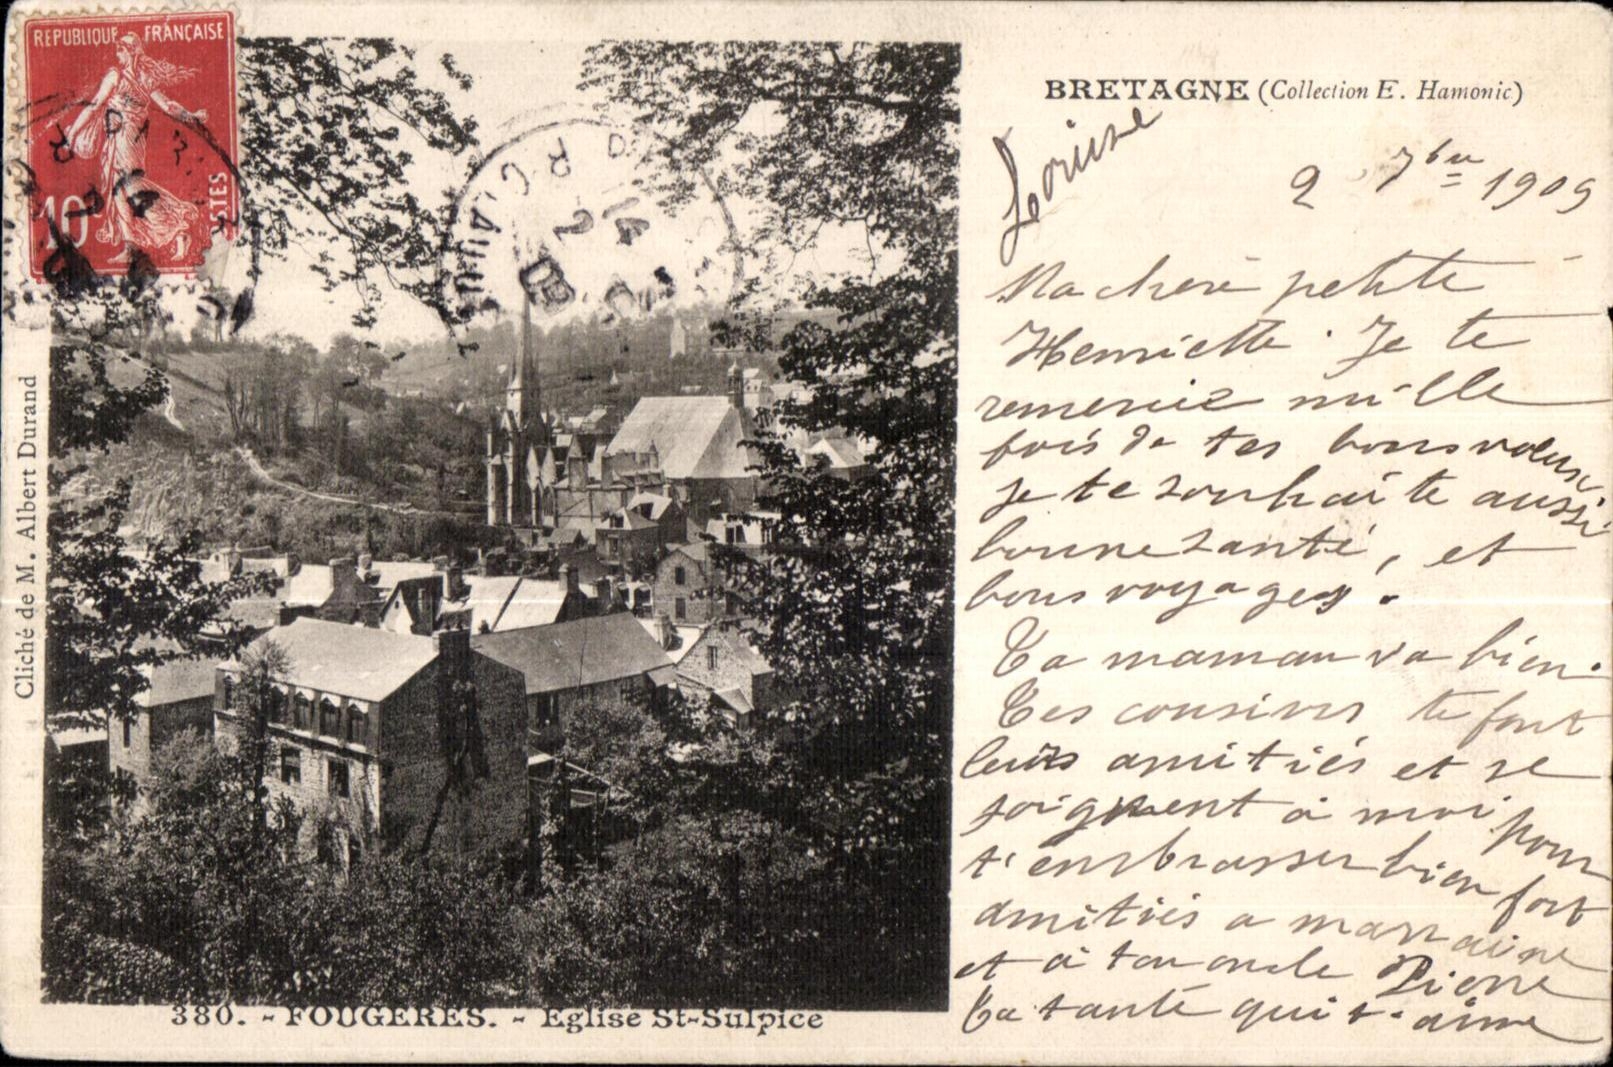 REPUBLIQUE FRANÇAISE
10c
POSTES
BRETAGNE (Collection E. Hamonic)
Louise
2 7bre 1909
Ma chère petite
Henriette. Je te
remercie mille
fois de tes bons voeux
je te souhaite aussi
bonne santé, et
bons voyages.
Ta maman va bien.
Tes cousins te font
leurs amitiés et se
joignent à moi pour
t'embrasser bien fort
amitiés a marraine
et à ton oncle Pierre
Ta tante qui t'aime
Cliché de M. Albert Durand
380. - FOUGERES. - Eglise St-Sulpice